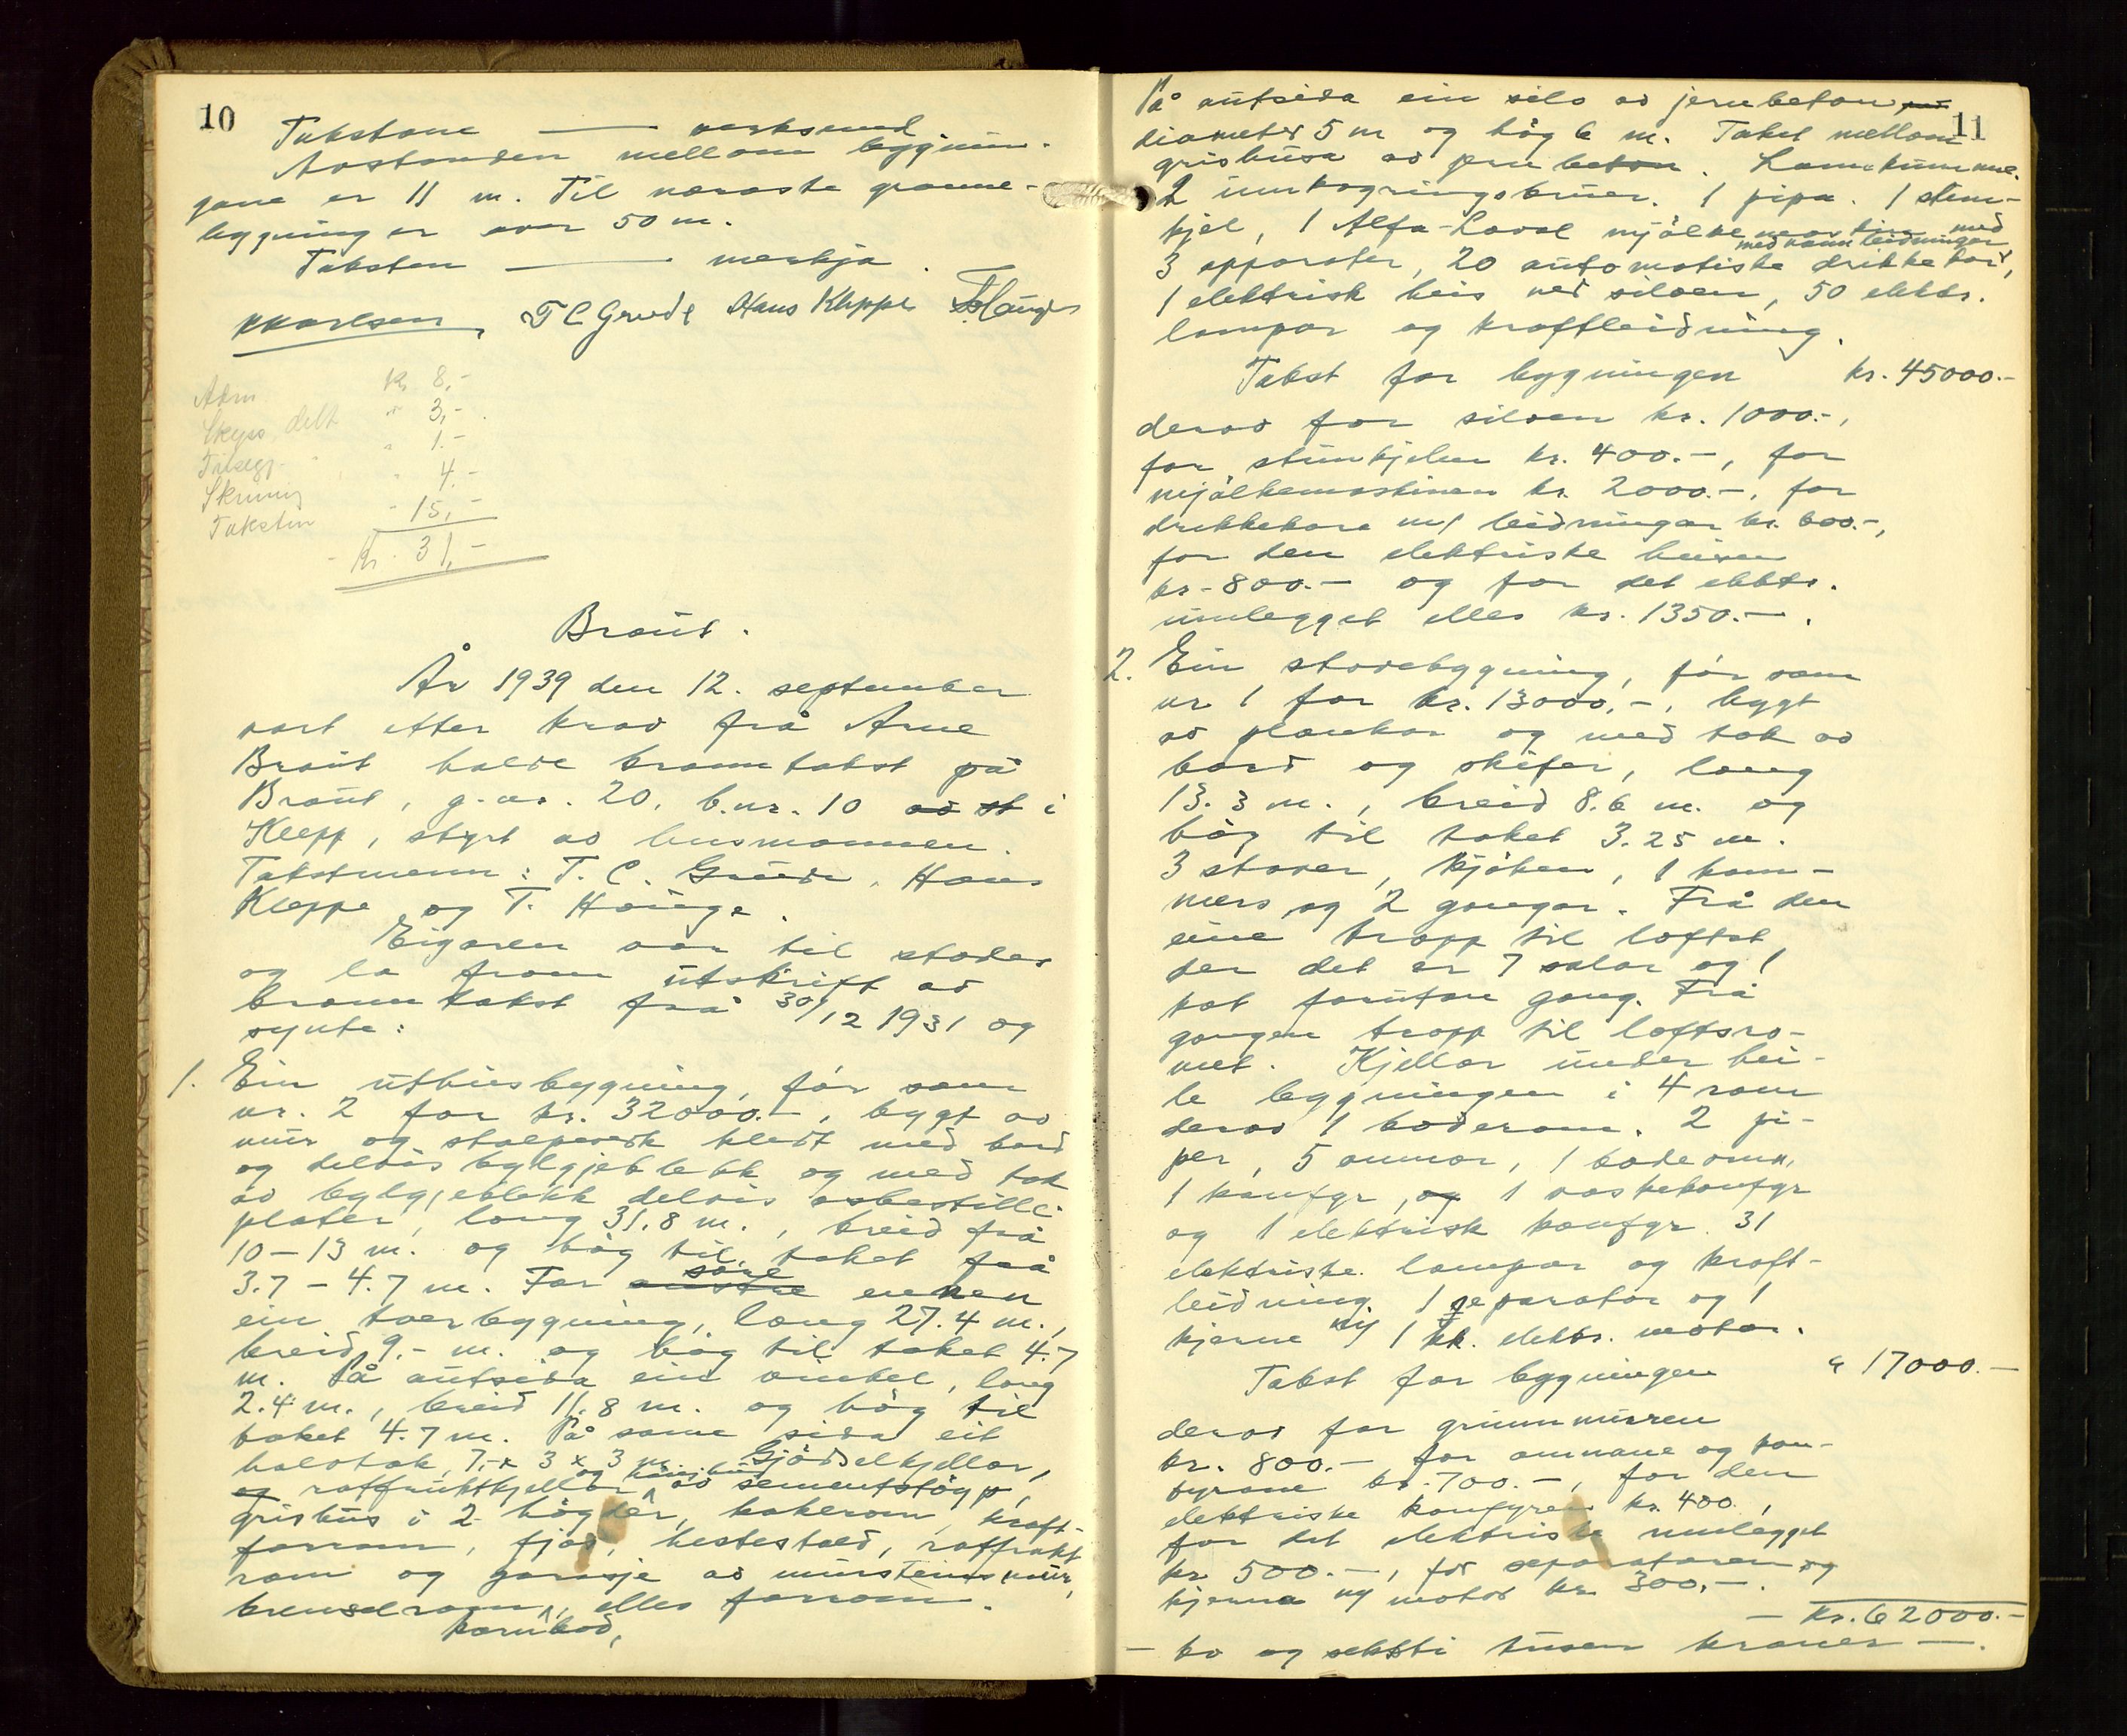 10
Takstane — verksmed
Avstanden mellom bygnin-
gane er 11 m. Til næraste granne-
bygning er over 50 m.
Taksten — merkja.
K Karlsen, T C Grude Hans Kleppe T. Hauge
Adm kr 8,-
Skyss delt " 3,-
Tilsegg. " " 1.-
Skrivning " 4.-
Taksten - 15,-
- Kr. 31,-
Braut.
År 1939 den 12. september
vart etter krav frå Arne
Braut halde branntakst på
Braut, g.nr. 20, b.nr. 10 av st i
Klepp, styrt av lensmannen.
Takstmenn: T. C. Grude, Hans
Kleppe og T. Hauge.
Eigaren var til stades
og la fram utskrift av
branntakst frå 30/12 1931 og
synte:
1. Ein uthusbygning, før som
nr. 2 for kr. 32000.-, bygt av
mur og stolpeverk kledt med bord
og delvis bylgjeblekk og med tak
av bylgjeblekk delvis asbestille-
plater, lang 31.8 m., breid frå
10-13 m. og høg til taket frå
3.7 - 4.7 m. For austre søre enden
ein tverbygning, lang 27.4 m.,
breid 9.- m. og høg til taket 4.7
m. På autsida ein vinkel, lang
2.4 m., breid 11.8 m. og høg til
taket 4.7 m. På same sida eit
halvtak, 7.- x 3 x 3 m. Gjødselkjellar,
og rotfruktkjellar og hønsehus av sementstøyp,
grishus i 2 høgder, kokerom, kraft-
forrom, fjøs, hestestald, rotfrukt
rom og garasje av mursteinsmur,
brenselrom, kornbod, elles forrom.
11
På autsida ein silo av jernbeton, med
diameter 5 m og høg 6 m. Taket mellom
grishusa av jern beton. Landkumme.
2 innkøyringsbruer. 1 pipa. 1 stem-
kjel, 1 Alfa-Laval mjølkemaskin med
3 apparater, 20 automatiske drikkekar med vannleidningar,
1 elektrisk heis ved siloen, 50 elektr.
lampor og kraftleidning.
Takst for bygningen kr. 45000.-
derav for siloen kr. 1000.-,
for stimkjelen kr. 400.-, for
mjølkemaskinen kr. 2000.-, for
drikkekara m/ leidningar kr. 600.-,
for den elektriske heisen
kr. 800.- og for det elektr.
innlegget elles kr. 1350.-.
2. Ein stovebygning, før som
nr 1 for kr. 13000,-, bygt
av plankar og med tak av
bord og skifer, lang
13.3 m., breid 8.6 m. og
høg til taket 3.25 m.
3 stover, kjøken, 1 kam-
mers og 2 gangar. Frå den
eine trapp til loftet,
der det er 7 salar og 1
kot forutan gang. Frå
gangen trapp til loftsro-
met. Kjellar under hei-
le bygningen i 4 rom
derav 1 baderom. 2 pi-
per, 5 omnar, 1 badeomn,
1 komfyr, og 1 vaskekomfyr
og 1 elektrisk komfyr. 31
elektriske lampor og kraft-
leidning. 1 separator og 1
kjerne m/ 1 hk. elektr. motor.
Takst for bygningen " 17000.-
derav for grunnmuren
kr. 800.- for omnane og kom-
fyrane kr. 700.-, for den
elektriske komfyren kr. 400.,
for det elektriske innlegget
kr. 500.-, for separatoren og
kjerna m/ motor kr. 300,-.
— Kr. 62000.-
— to og sekstti tusen kroner —.